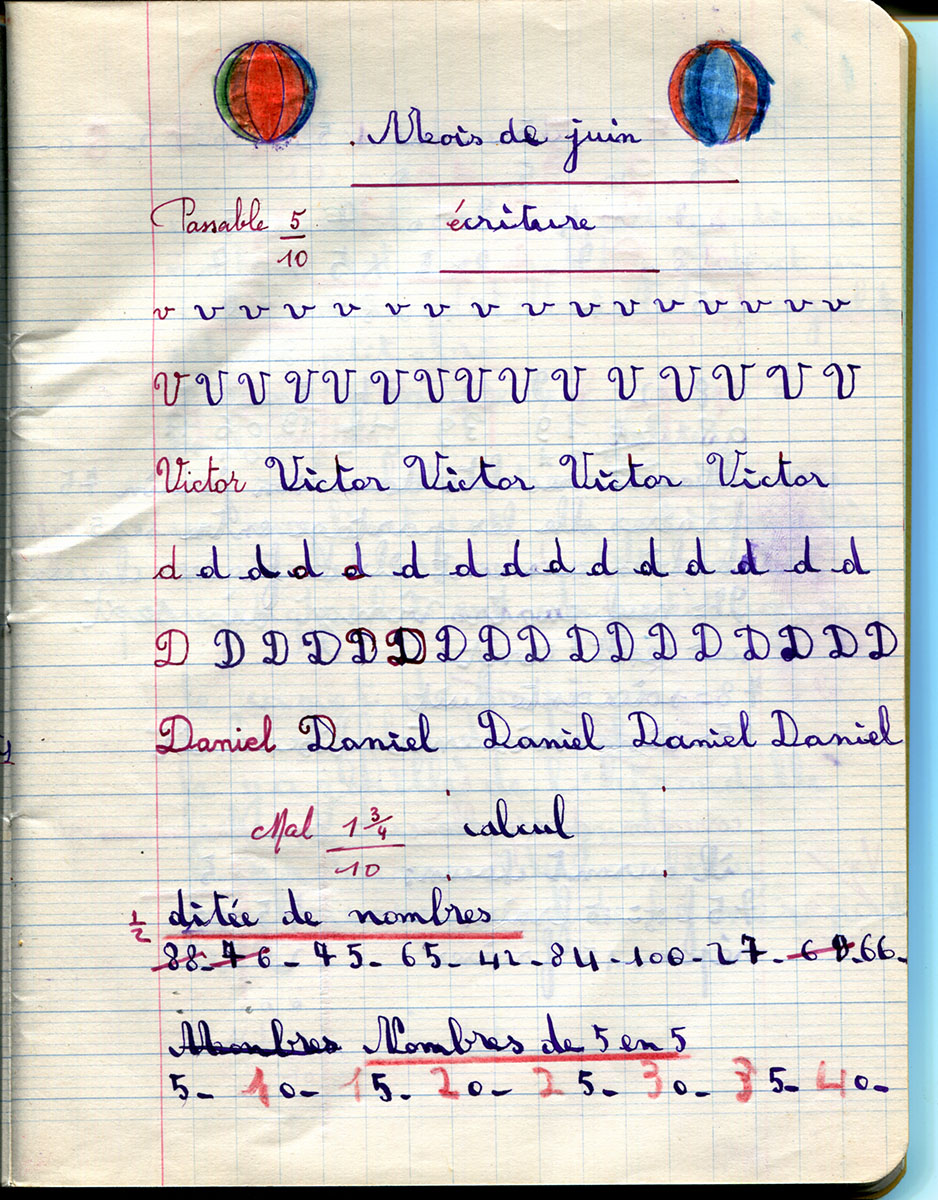 Mois de juin
Passable 5/10 écriture
v v v v v v v v v v v v v v v v
V V V V V V V V V V V V V V V
Victor Victor Victor Victor Victor
d d d d d d d d d d d d d d d
D D D D D D D D D D D D D D D D
Daniel Daniel Daniel Daniel Daniel
Mal 1 3/4 / 10 calcul
1/2 ditée de nombres
88 - 76 - 75 - 65 - 42 - 84 - 100 - 27 - 66 -
Nombres Nombres de 5 en 5
5 - 10 - 15 - 20 - 25 - 30 - 35 - 40 -